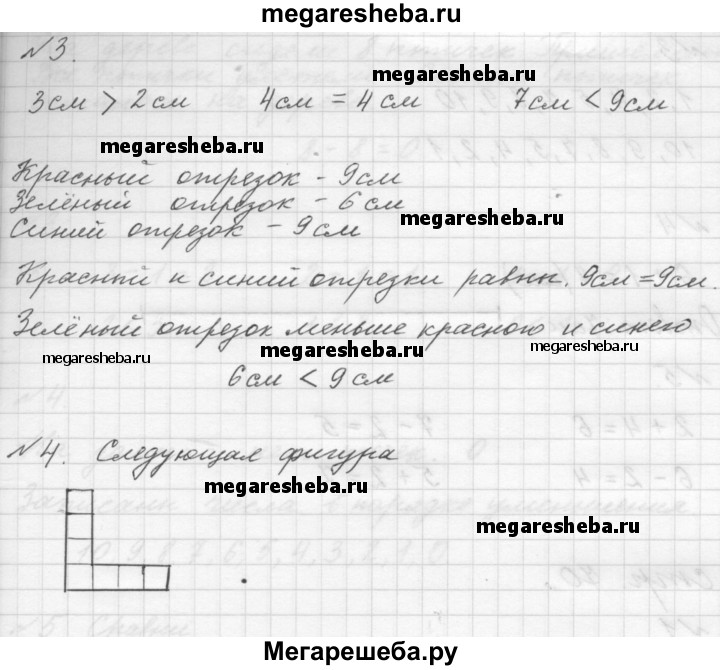 megaresheba.ru
№3.
megaresheba.ru
3см > 2см 4см = 4см 7см < 9см
megaresheba.ru
Красный отрезок - 9см
Зелёный отрезок - 6см
megaresheba.ru
Синий отрезок - 9см
Красный и синий отрезки равны. 9см = 9см.
Зелёный отрезок меньше красного и синего
megaresheba.ru megaresheba.ru megaresheba.ru
6см < 9см
№4. Следующая фигура
megaresheba.ru
megaresheba.ru
Мегарешеба.ру